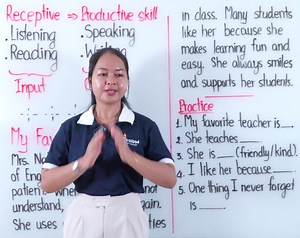 Receptive ⇒ Productive skill
.Listening
.Speaking
.Reading
Input
My Fav
Mrs.
of Eng
patien
not
understand,
She uses
in class. Many students
like her because she
makes learning fun and
easy. She always smiles
and supports her students.
Practice
1. My favorite teacher is___.
2. She teaches____
3. She is___(friendly/kind).
4. I like her because____
5. One thing I never forget
is____.